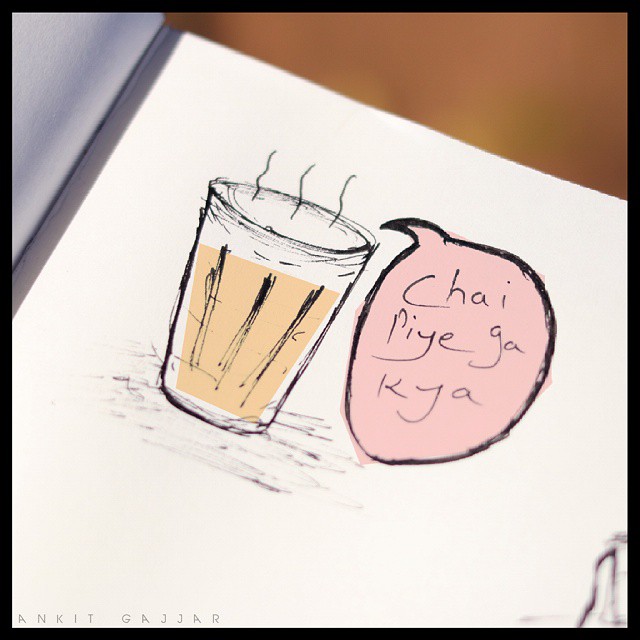 Chai
Piye ga
Kya
ANKIT GAJJAR